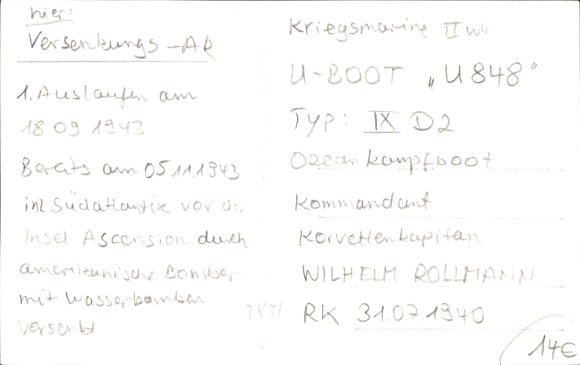 hier:
Versenkungs-AK
1. Auslaufen am
18 09 1943
Bereits am 05.11.1943
im Südatlantik vor der
Insel Ascension durch
amerikanische Bomber
mit Wasserbomben
versenkt
Kriegsmarine II WK
U-BOOT „U 848"
Typ: IX D2
Ozeankampfboot
Kommandant
Korvettenkapitän
WILHELM ROLLMANN
RK 31.07.1940
3831
14€